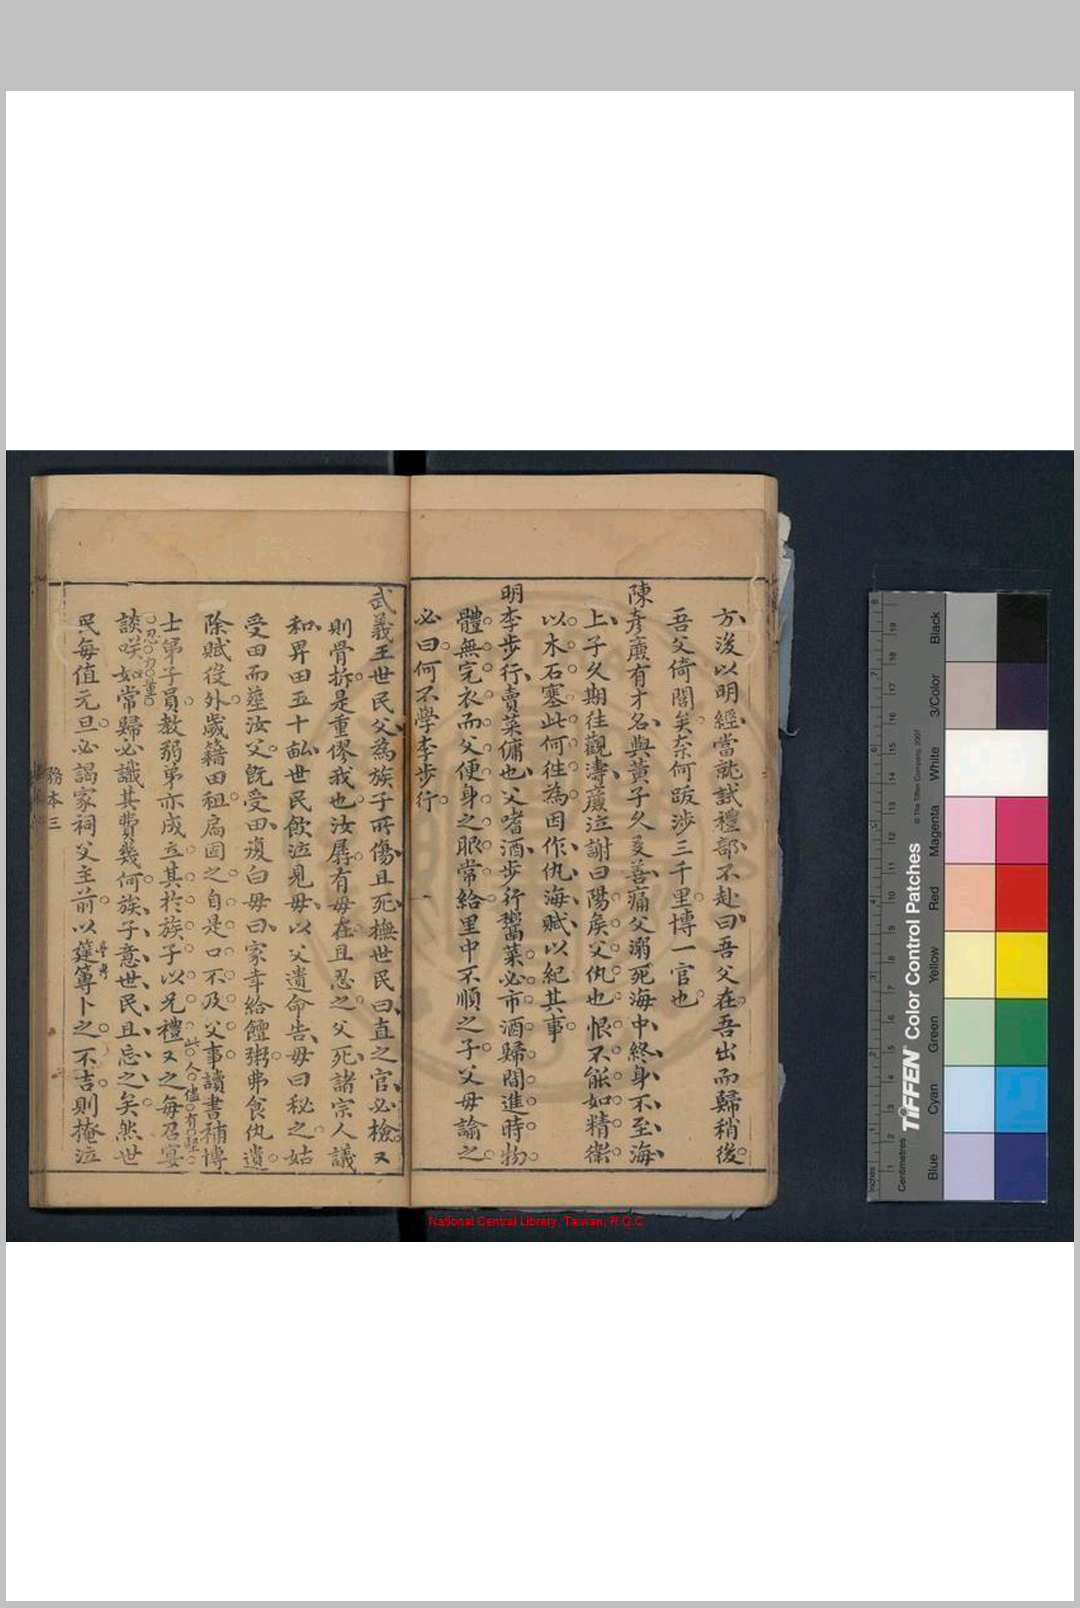 方浚以明經當就試禮部不赴曰吾父在吾出而歸稍後
吾父倚閭矣奈何跋涉三千里博一官也
陳彥廉有才名與黃子久善痛父溺死海中終身不至海
上子久期往觀濤廉泣謝曰陽矦父仇也恨不能如精衛
以木石塞此何徃為因作仇海賦以紀其事
明李步行賣菜傭也父嗜酒步行鬻菜必市酒歸間進時物
體無完衣而父便身之服常給里中不順之子父母諭之
必曰何不學李步行
武義王世民父為族子所傷且死撫世民曰直之官必檢又
則骨拆是重僇我也汝孱有母在且忍之父死諸宗人議
和畀田五十畝世民飲泣見母以父遺命告母曰秘之姑
受田而塟汝父既受田復白母曰家幸給饘粥弗食仇遺
除賦役外歲籍田租扃固之自是口不及父事讀書補博
士弟子員教弱弟亦成立其於族子以兄禮又之每召宴
此人儘有堅
忍力量
談咲如常歸必識其費幾何族子意世民且忘之矣然世
民每值元旦必謁家祠父主前以筳篿卜之不吉則掩泣
務本三
National Central Library, Taiwan, R.O.C
Black
3/Color
White
Magenta
Red
Yellow
Green
Cyan
Blue
TIFFEN Color Control Patches
© The Tiffen Company, 2007
Centimetres
Inches